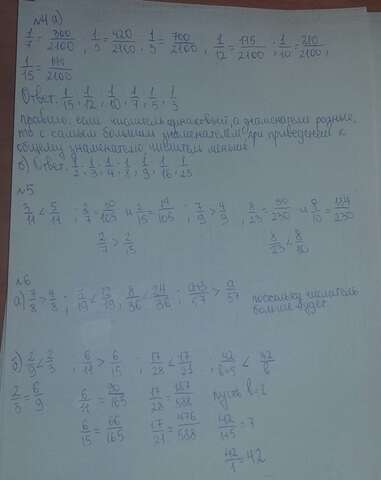 №4 а)
1/7 = 300/2100, 1/5 = 420/2100, 1/3 = 700/2100, 1/12 = 175/2100, 1/10 = 210/2100,
1/15 =
Ответ: 1/15, 1/12, 1/10, 1/7, 1/5, 1/3
правило: если числитель одинаковый, а знаменатели разные,
то с самым большим знаменателем при приведении к
общему знаменателю числитель меньше
б) Ответ: 1/2, 1/3, 1/4, 1/8, 1/9, 1/16, 1/25
№5
3/11 < 5/11 ; 2/7 = 30/105 и 2/15 = 14/105 ; 7/9 > 4/9 ; 8/23 = 80/230 и 8/10 = 184/230
2/7 > 2/15 8/23 < 8/10
№6
а) 7/8 > 4/8 ; 5/19 < 12/19 ; 8/36 < 24/36 ; a+3/57 > a/57 поскольку числитель
больше будет
б) 2/9 < 2/3 ; 6/11 > 6/15 ; 17/28 < 17/21 ; 42/b+5 < 42/b
2/3 = 6/9 6/11 = 90/165 17/28 = 357/588 пусть b=1
6/15 = 66/165 17/21 = 476/588 42/1+5 = 7
42/1 = 42